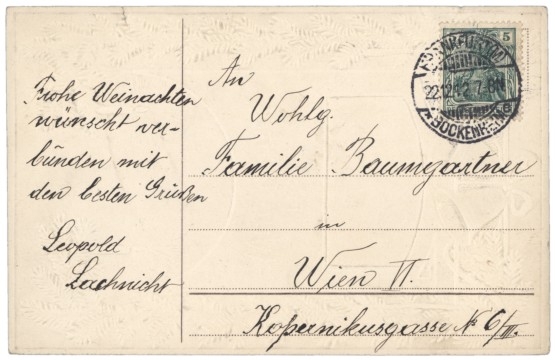 Frohe Weinachten
wünscht ver-
bünden mit
den besten Grüßen
Leopold
Lachnicht
An
Wohlg.
Familie Baumgartner
in
Wien VI.
Kopernikusgasse № 6/III.
5
FRANKFURT
22.12.12.7-8N
BOCKENHEIM